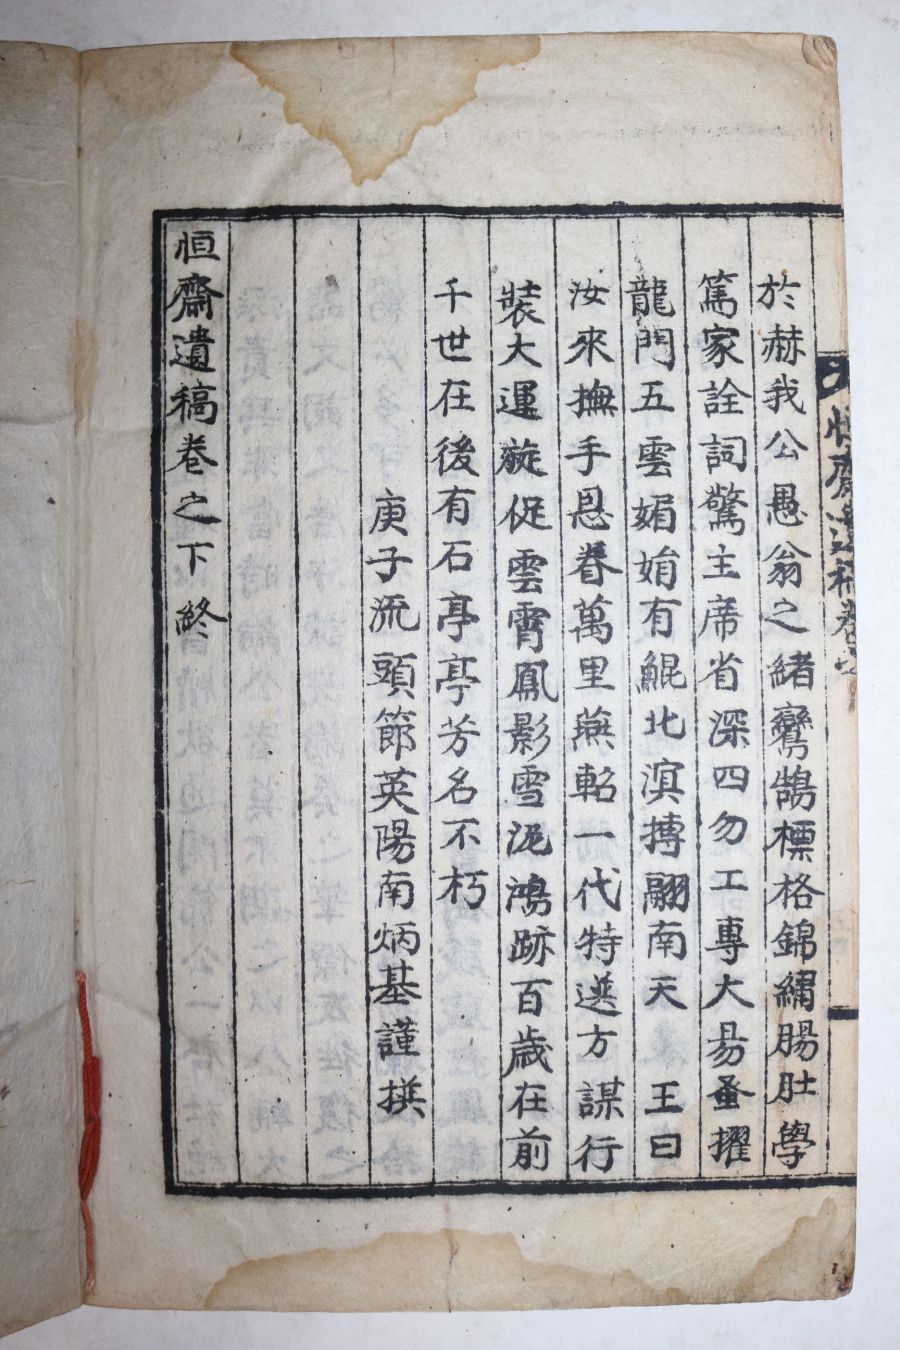 於赫我公愚翁之緖鸞鵠標格錦繡腸肚學
篤家詮詞驚主席省深四勿工專大易蚤擢
龍門五雲媚娟有鯤北溟搏翮南天 王曰
汝來撫手恩眷萬里燕軺一代特選方謀行
裝大運㫌促雲霄鳳影雪泥鴻跡百歲在前
千世在後有石亭亭芳名不朽
庚子流頭節英陽南炳基謹撰
恒齋遺稿卷之下終